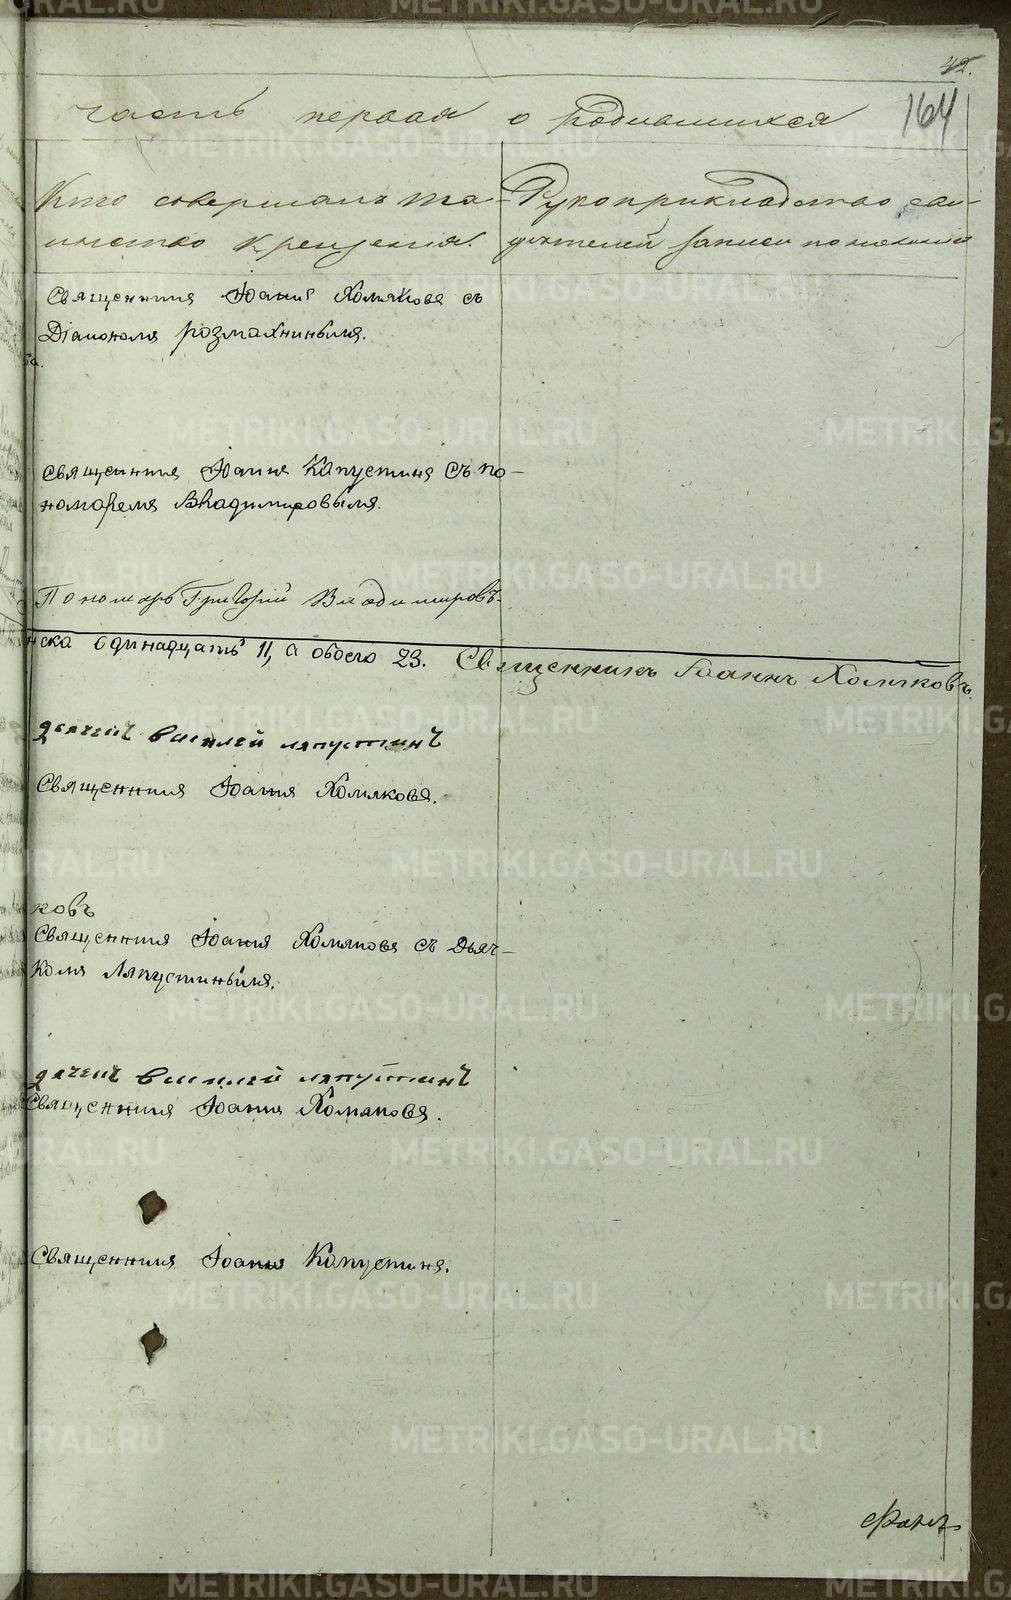 42.
164
часть первая о родившихся
Кто совершалъ та-
инство крещенія.
Рукоприкладство сви-
дѣтелей записи по желанію
Священникъ Іоаннъ Хомяковъ съ
Діакономъ Розмахнинымъ.
Священникъ Іоаннъ Капустинъ съ по-
номаремъ Владимировымъ.
Пономарь Григорій Владимировъ.
нска одинадцать 11, а обоего 23. Священникъ Іоаннъ Хомяковъ.
дячекъ василей ляпустинъ
Священникъ Іоаннъ Хомяковъ.
ковъ
Священникъ Іоаннъ Хомяковъ съ Дьяч-
комъ Ляпустинымъ.
дячекъ василей ляпустинъ
Священникъ Іоаннъ Хомяковъ.
Священникъ Іоаннъ Капустинъ.
METRIKI.GASO-URAL.RU